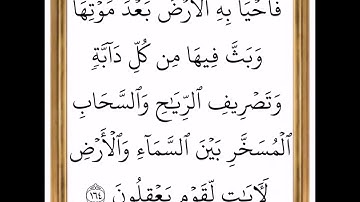 فَأَحۡيَا بِهِ ٱلۡأَرۡضَ بَعۡدَ مَوۡتِهَا
وَبَثَّ فِيهَا مِن كُلِّ دَآبَّةٖ
وَتَصۡرِيفِ ٱلرِّيَٰحِ وَٱلسَّحَابِ
ٱلۡمُسَخَّرِ بَيۡنَ ٱلسَّمَآءِ وَٱلۡأَرۡضِ
لَأٓيَٰتٖ لِّقَوۡمٖ يَعۡقِلُونَ ١٦٤